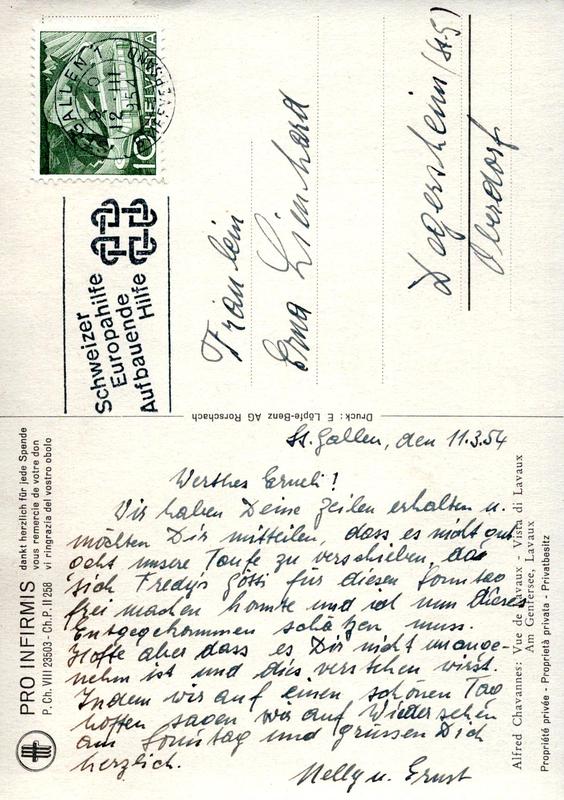 ST. GALLEN 1
12.III.1954
BRIEFVERSAND
HELVETIA
10
Schweizer
Europahilfe
Aufbauende
Hilfe
Fräulein
Erna Lienhard
Degersheim (St. G)
Oberdorf
Druck: E. Löpfe-Benz AG Rorschach
St. Gallen, den 11.3.54
Werthes Erneli!
Wir haben Deine Zeilen erhalten u.
möchten Dir mitteilen, dass es nicht gut
geht unsere Taufe zu verschieben, da
sich Fredy's Götti für diesen Sonntag
frei machen konnte und ich nun dieses
Entgegekommen schätzen muss.
Hoffe aber dass es Dir nicht unange-
nehm ist und dies verstehen wirst.
Indem wir auf einen schönen Tag
hoffen sagen wir auf Wiedersehen
am Sonntag und grüssen Dich
herzlich.
Nelly u. Ernst
PRO INFIRMIS
P. Ch. VIII 23503 - Ch. P. II 258
dankt herzlich für jede Spende
vous remercie de votre don
vi ringrazia del vostro obolo
Alfred Chavannes: Vue de Lavaux - Vista di Lavaux
Am Genfersee, Lavaux
Propriété privée - Proprietà privata - Privatbesitz